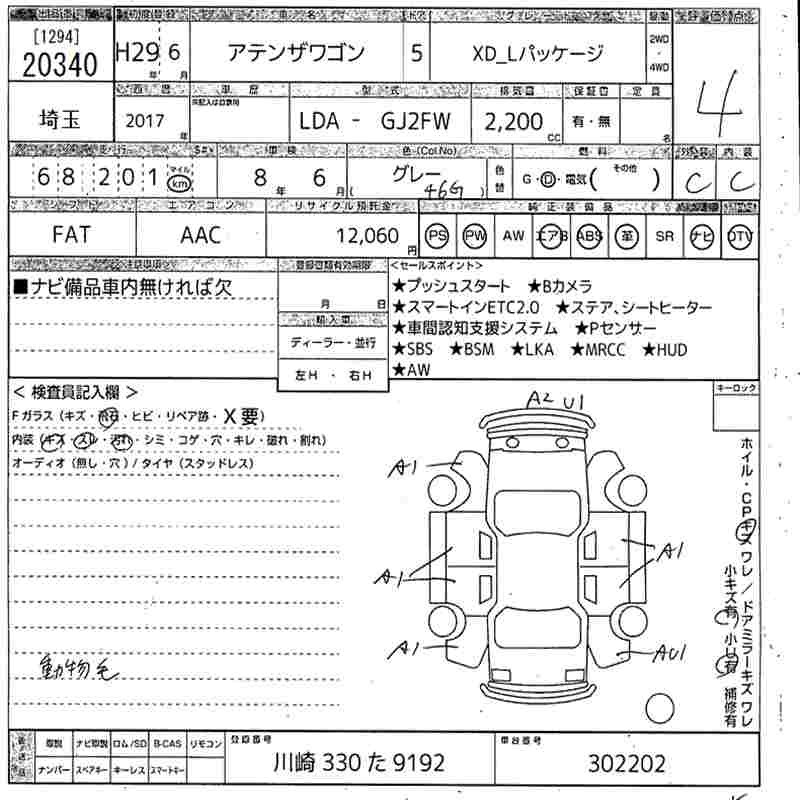 [1294]
20340
H29 年 6 月
アテンザワゴン
5
XD_Lパッケージ
2WD
・
4WD
4
埼玉
2017 年
型式
LDA - GJ2FW
排気量
2,200 CC
保証書
有・無
定員
名
走行
68,201 マイル km
車検
8 年 6 月
色(Col.No)
グレー
( 46G )
色替
燃料
G・D・電気( その他 )
外装
C
内装
C
シフト
FAT
エアコン
AAC
リサイクル預託金
12,060 円
純正装備品
PS PW AW エアB ABS 革 SR ナビ DTV
注意事項
■ナビ備品車内無ければ欠
登録書類有効期限
月 日
輸入車
ディーラー・並行
左H ・ 右H
<セールスポイント>
★プッシュスタート ★Bカメラ
★スマートインETC2.0 ★ステア、シートヒーター
★車間認知支援システム ★Pセンサー
★SBS ★BSM ★LKA ★MRCC ★HUD
★AW
< 検査員記入欄 >
Fガラス (キズ・飛石・ヒビ・リペア跡・X要)
内装 (キズ・スレ・汚れ・シミ・コゲ・穴・キレ・破れ・割れ)
オーディオ (無し・穴) / タイヤ (スタッドレス)
動物毛
A2 U1
A1
A1
A1
A1
AU1
キーロック
ホイル・CPキズ ワレ/ドアミラーキズ ワレ
小キズ有 小U有 補修有
取説 ナビ取説 ロム/SD B-CAS リモコン
ナンバー スペアキー キーレス スマートキー
登録番号
川崎 330 た 9192
車台番号
302202